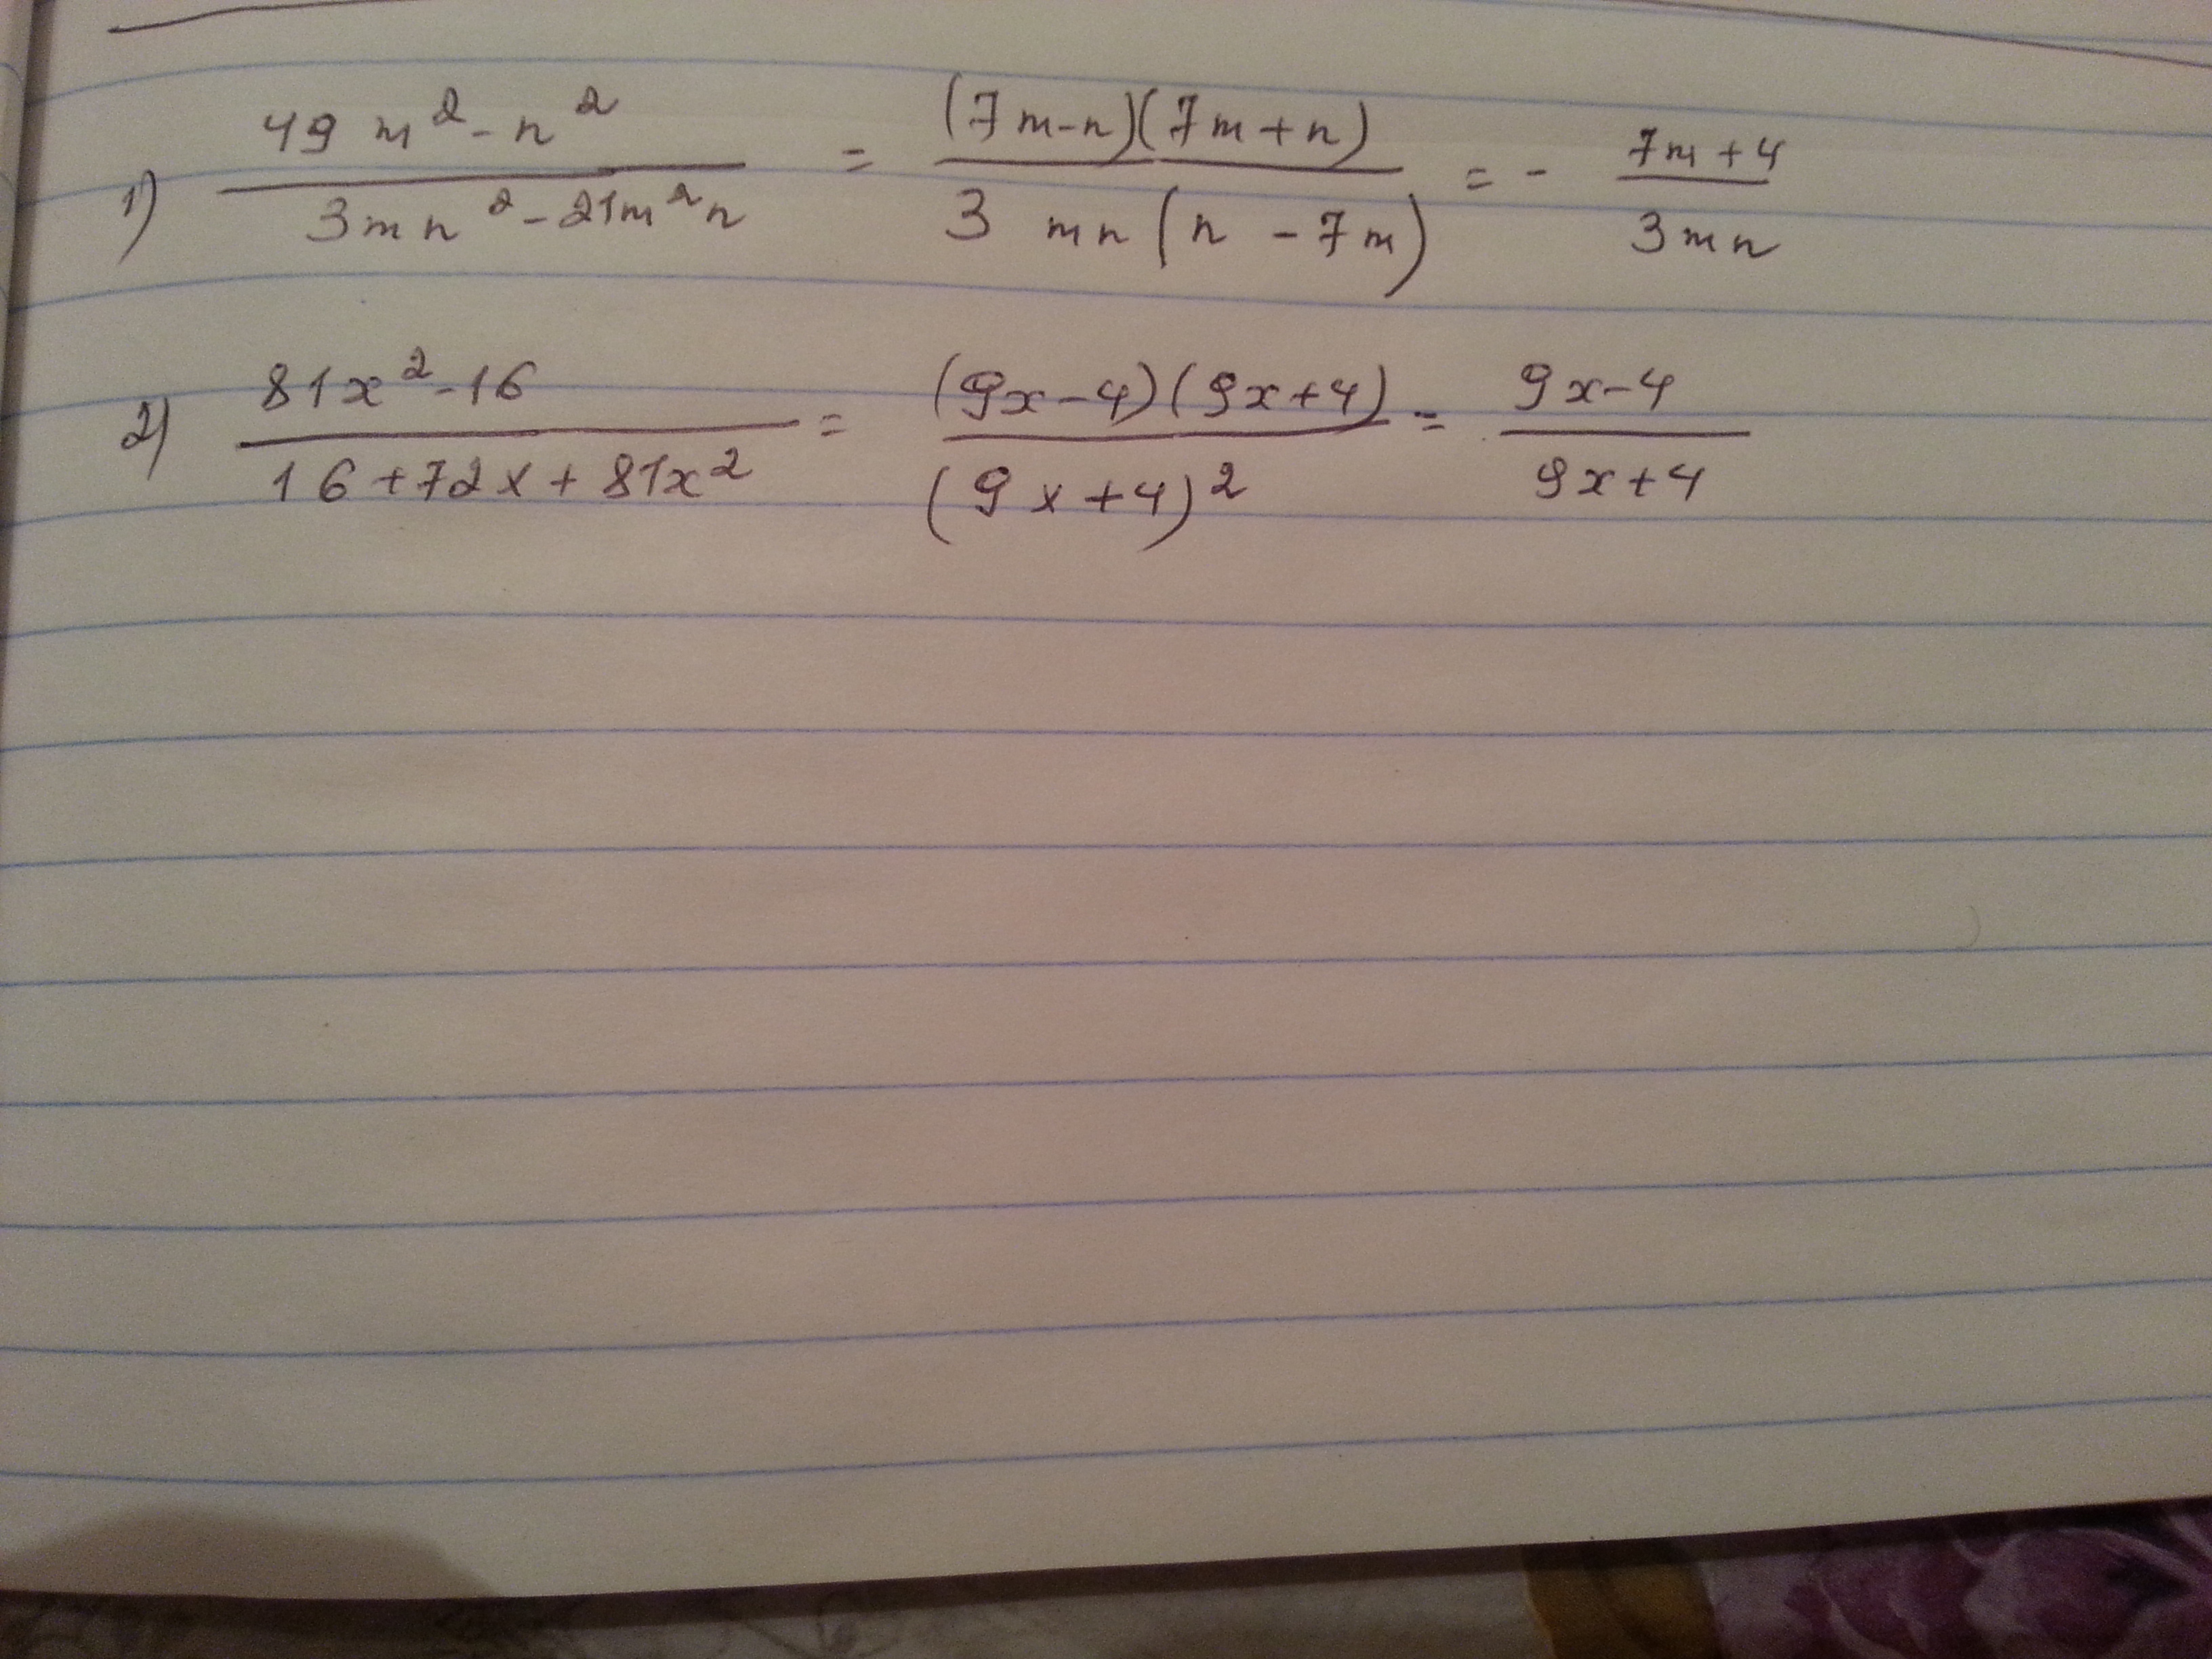 1) (49 m² - n²)/(3mn² - 21m²n) = ((7m-n)(7m+n))/(3 mn(n - 7m)) = - (7m+4)/(3mn)
2) (81x² - 16)/(16+72x+81x²) = ((9x-4)(9x+4))/((9x+4)²) = (9x-4)/(9x+4)